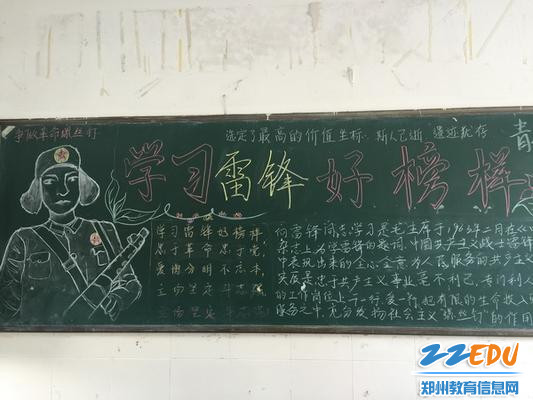 争做革命螺丝钉
选定了最高的价值坐标，斯人已逝，遗迹犹存
青
学习雷锋好榜样
学习雷锋好榜样
忠于革命忠于党
爱憎分明不忘本
立场坚定斗志
立场坚定斗志
向雷锋同志学习是毛主席于1963年二月在《
杂志上为学雷锋的题词，中国共产主义战士雷锋
中表现出来的全心全意为人民服务的共产主义
实质是忠于共产主义事业毫不利己，专门利人
的工作岗位上干一行，爱一行，把有限的生命投入
服务之中，充分发扬社会主义"螺丝钉"的作用
ZZEDU
郑州教育信息网